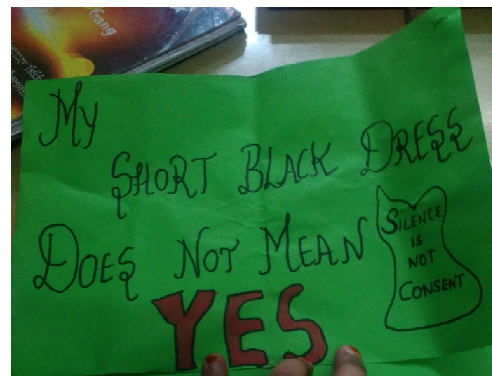 Gang
My
SHORT BLACK DRESS
DOES NOT MEAN
YES
SILENCE
IS
NOT
CONSENT